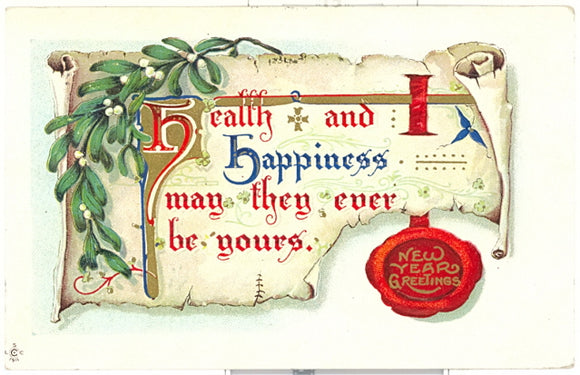 Health and
Happiness
may they ever
be yours.
NEW
YEAR
GREETINGS